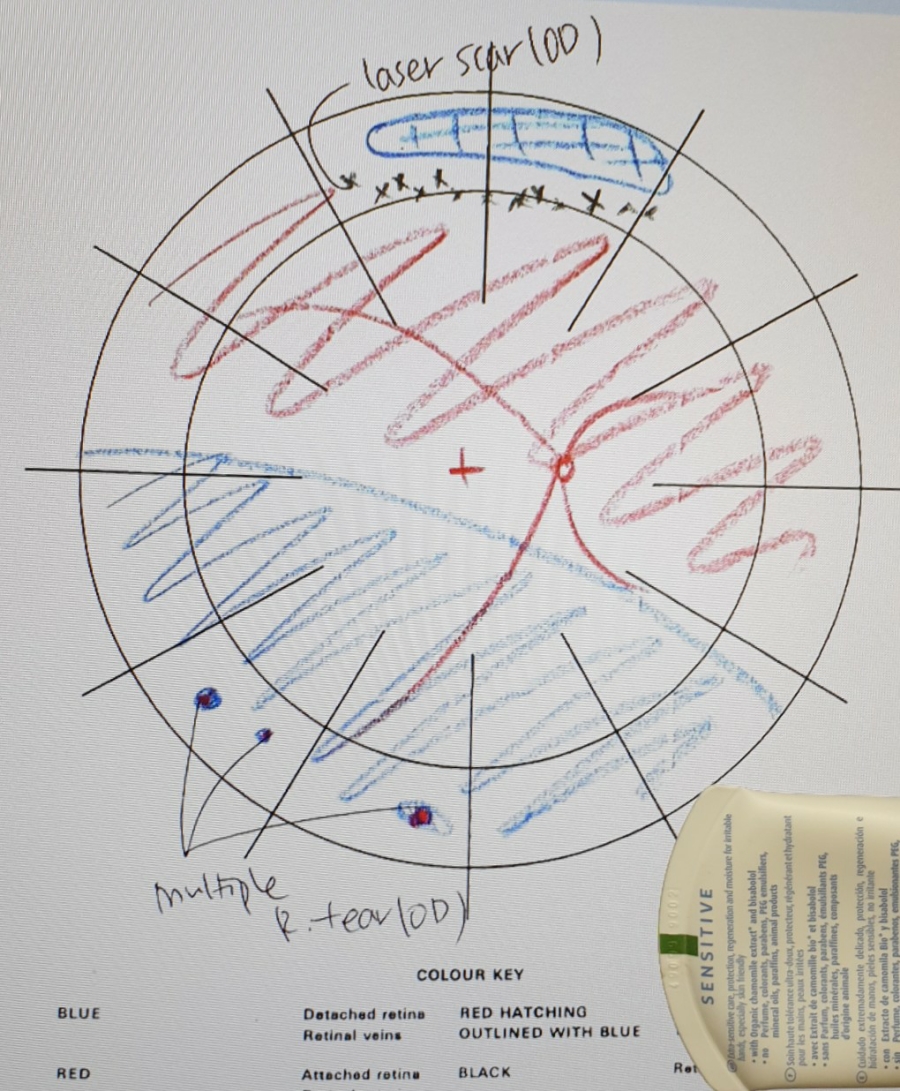 laser scar (OD)
multiple
R. tear (OD)
COLOUR KEY
BLUE
Detached retina
Retinal veins
RED HATCHING
OUTLINED WITH BLUE
RED
Attached retina
BLACK
Ret
SENSITIVE
sensitive care, protection, regeneration and moisture for irritable
hands, especially skin friendly
• with Organic chamomile extract* and bisabolol
• no Perfume, colorants, parabens, PEG emulsifiers,
mineral oils, paraffins, animal products
Soin haute tolérance ultra-doux, protecteur, régénérant et hydratant
pour les mains, peaux irritées
• avec Extrait de camomille bio* et bisabolol
• sans Parfum, colorants, parabens, émulsifiants PEG,
huiles minérales, paraffines, composants
d'origine animale
Cuidado extremadamente delicado, protección, regeneración e
hidratación de manos, pieles sensibles, no irritante
• con Extracto de camomila Bio* y bisabolol
• sin Perfume, colorantes, parabenos, emulsionantes PEG,